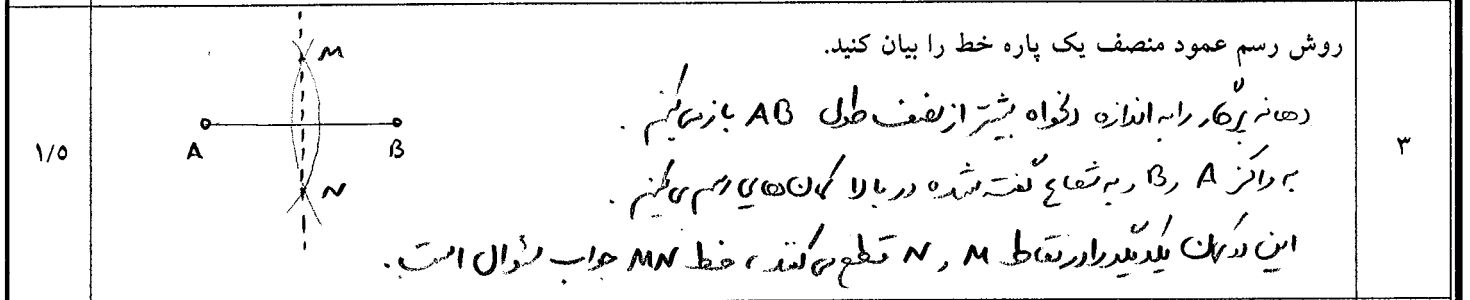 ۳
روش رسم عمود منصف یک پاره خط را بیان کنید.
دهانه پرگار را به اندازه دلخواه بیشتر از نصف طول AB باز می‌کنیم.
به مراکز A و B و به شعاع گفته شده در بالا کمان‌هایی رسم می‌کنیم.
این دو کمان یکدیگر را در نقاط M و N قطع می‌کنند، خط MN جواب سؤال است.
M
A B
N
۱/۵